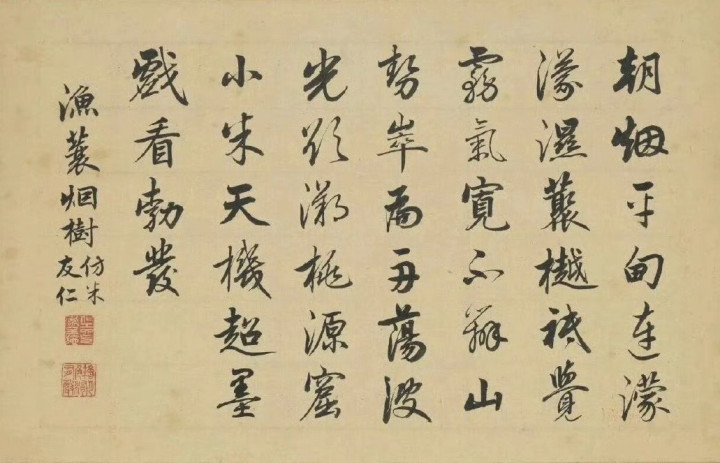 朝烟平甸連濛
濛濕蓑樾祗覺
霧氣寬不辨山
勢崒扁舟蕩波
光欲溯桃源窟
小米天機超墨
戲看勃發
漁蓑烟樹
仿米
友仁